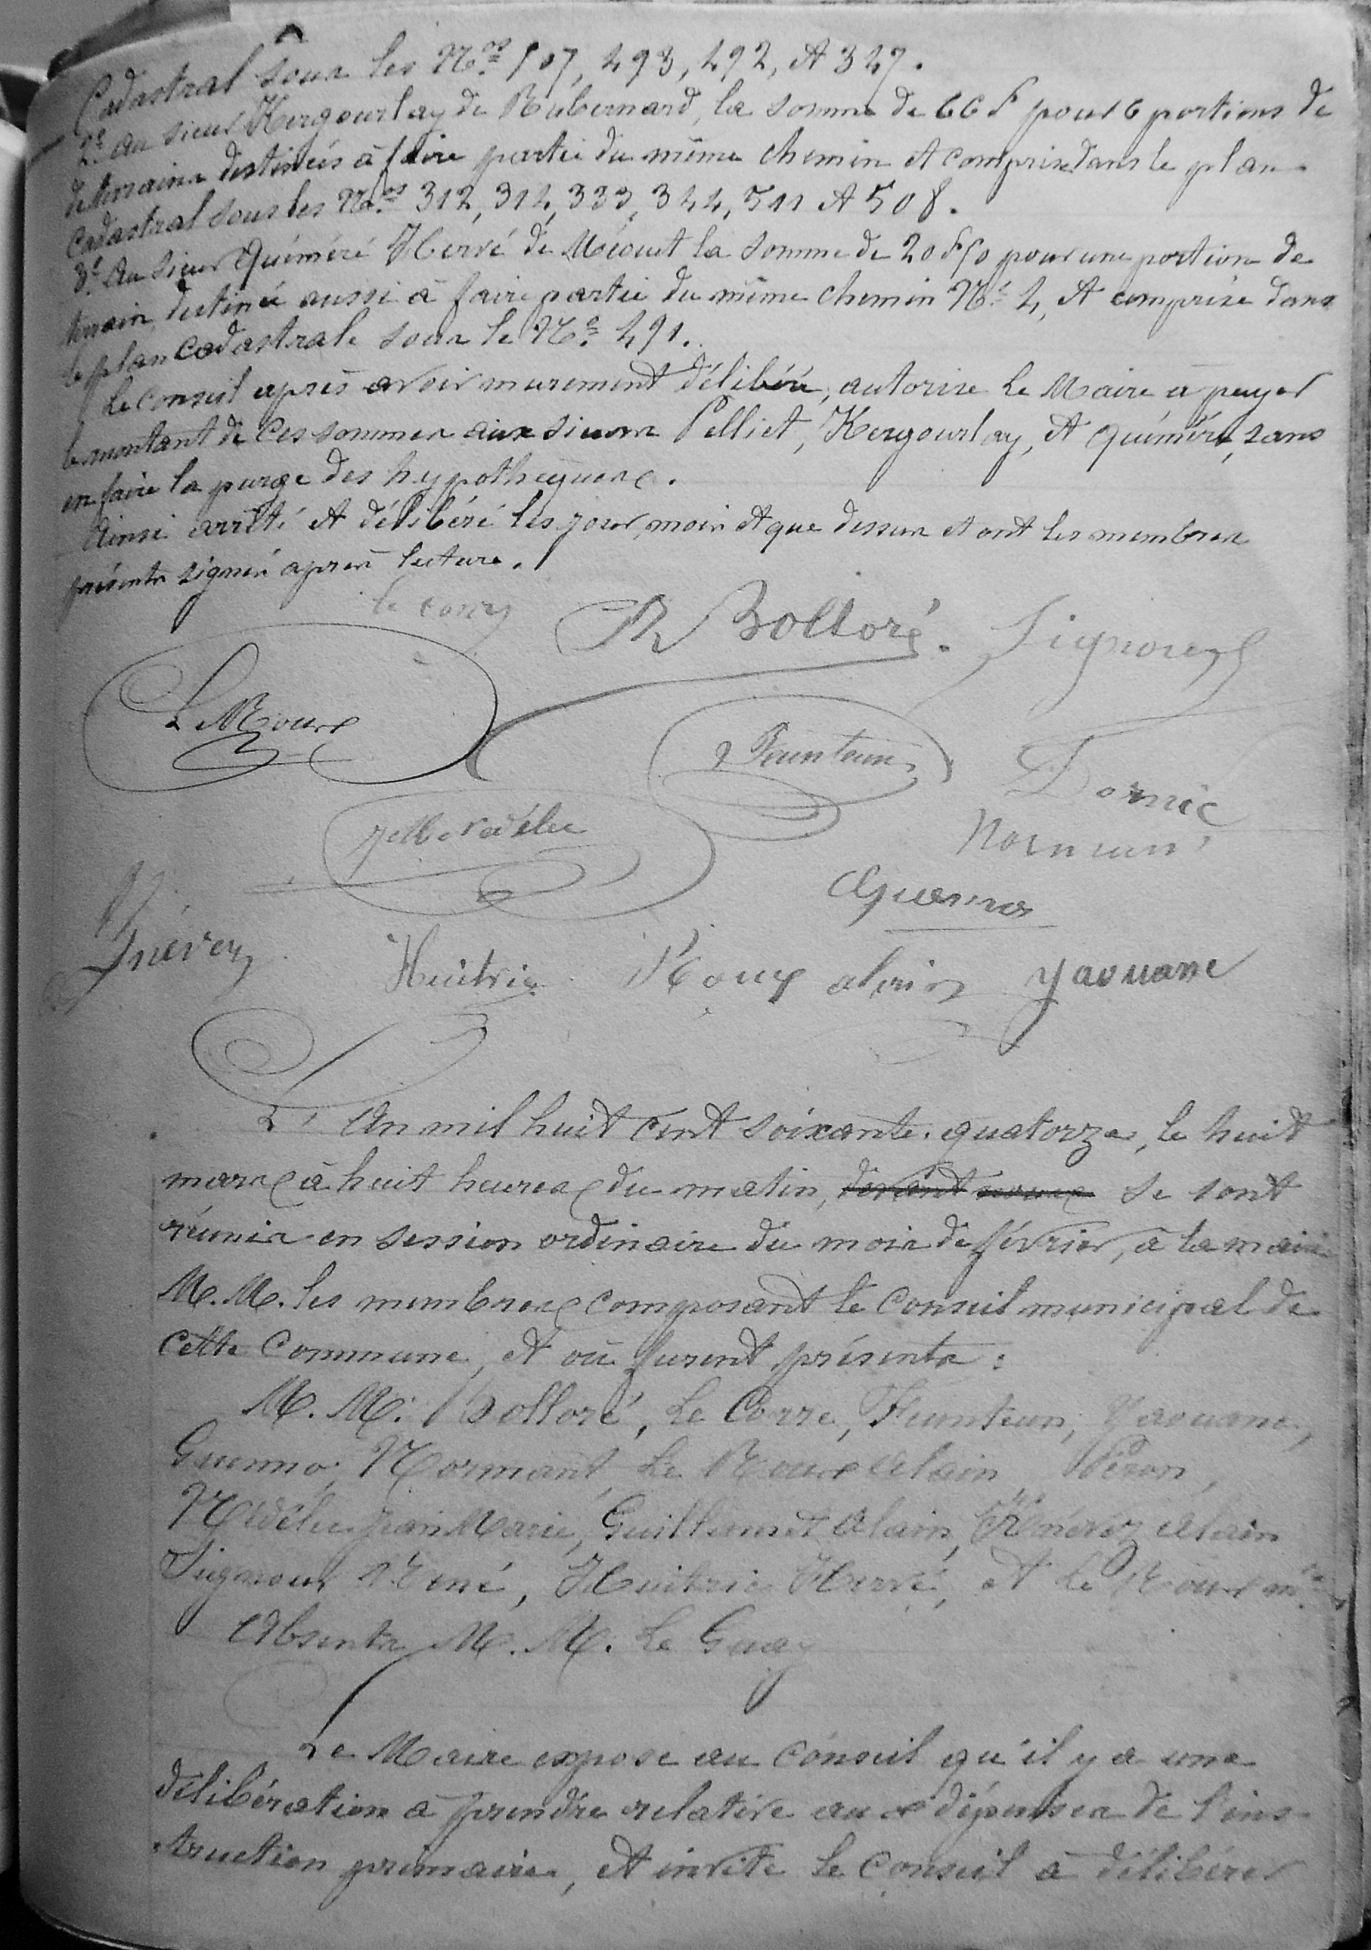 Cadastral sous les Nos 507, 493, 492, et 347.
2e Au sieur Kergourlay de Rubernard, la somme de 66 f pour 6 portions de
de terrains destinées à faire partie du même chemin et compris dans le plan
Cadastral sous les Nos 312, 314, 333, 344, 511 et 508.
3e Au sieur Quéméré Hervé de la somme de 20 f 50 pour une portion de
terrain destinée aussi à faire partie du même chemin No 4, et comprise dans
le plan cadastrale sous le No 491.
Le Conseil après avoir murement délibéré, autorise le Maire à payer
le montant de ces sommes aux sieurs Pelliet, Kergourlay, et Quéméré, sans
en faire la purge des hypothèques.
Ainsi arrêté et délibéré les jour, mois et que dessus et ont les membres
présents signé après lecture.
le corre
R Bolloré. Signour
Le Roux
Feunteun
Dornic
Normant
Guenno
Huitric Roux alain yaouanc
L'An mil huit cent soixante-quatorze, le huit
mars à huit heures du matin, devant nous se sont
réunis en session ordinaire du mois de février, à la mairie
M.M. les membres composant le Conseil municipal de
cette Commune, et où furent présents :
M.M. Bolloré, Le Corre, Feunteun, Yaouanc,
Guenno, Normant, Le Roux Alain, Péron,
Nédélec Jean Marie, Guillamet Alain, Alain
Signour René, Huitric Hervé, et Le Roux
Absents M.M. Le Guay
Le Maire expose au Conseil qu'il y a une
délibération à prendre relative aux dépenses de l'ins-
truction primaire, et invite le Conseil à délibérer